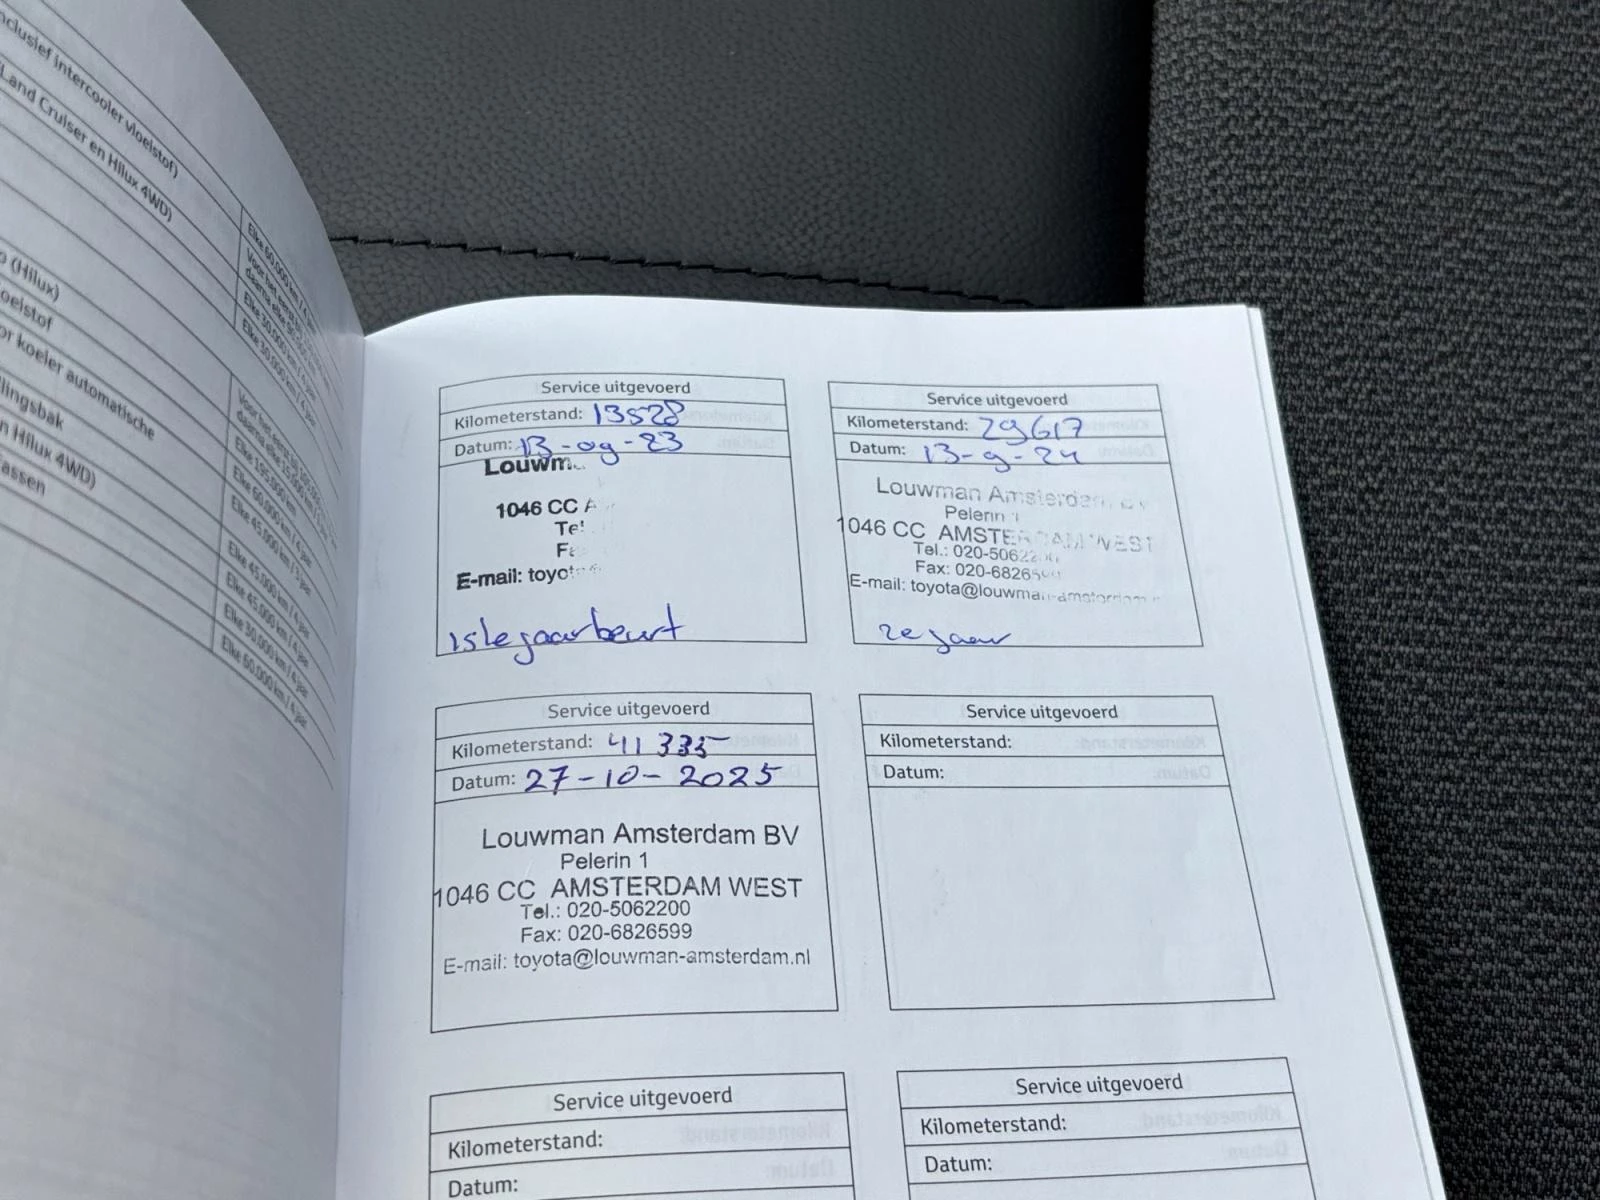 nclusief intercooler vloeistof)
Land Cruiser en Hilux 4WD)
(Hilux)
oeistof
or koeler automatische
llingsbak
n Hilux 4WD)
assen
Elke 60.000 km / 4 jaar
Voor het eerst bij
daarna elke
Elke 30.000 km /
Elke 30.000 km / 4 jaar
Voor het eerst bij
daarna elke
Elke 195.000 km
Elke 60.000 km / 4 jaar
Elke 45.000 km / 3 jaar
Elke 45.000 km / 4 jaar
Elke 45.000 km / 4 jaar
Elke 30.000 km / 4 jaar
Elke 60.000 km / 4 jaar
Service uitgevoerd
Kilometerstand: 13528
Datum: 13-09-23
Louwm
1046 CC A
Tel
Fa
E-mail: toyot
1ste jaarbeurt
Service uitgevoerd
Kilometerstand: 29617
Datum: 13-9-24
Louwman Amsterdam BV
Pelerin 1
1046 CC AMSTERDAM WEST
Tel.: 020-5062200
Fax: 020-6826599
E-mail: toyota@louwman-amsterdam.n
2e jaar
Service uitgevoerd
Kilometerstand: 41 335
Datum: 27-10-2025
Louwman Amsterdam BV
Pelerin 1
1046 CC AMSTERDAM WEST
Tel.: 020-5062200
Fax: 020-6826599
E-mail: toyota@louwman-amsterdam.nl
Service uitgevoerd
Kilometerstand:
Datum:
Service uitgevoerd
Kilometerstand:
Datum:
Service uitgevoerd
Kilometerstand:
Datum: